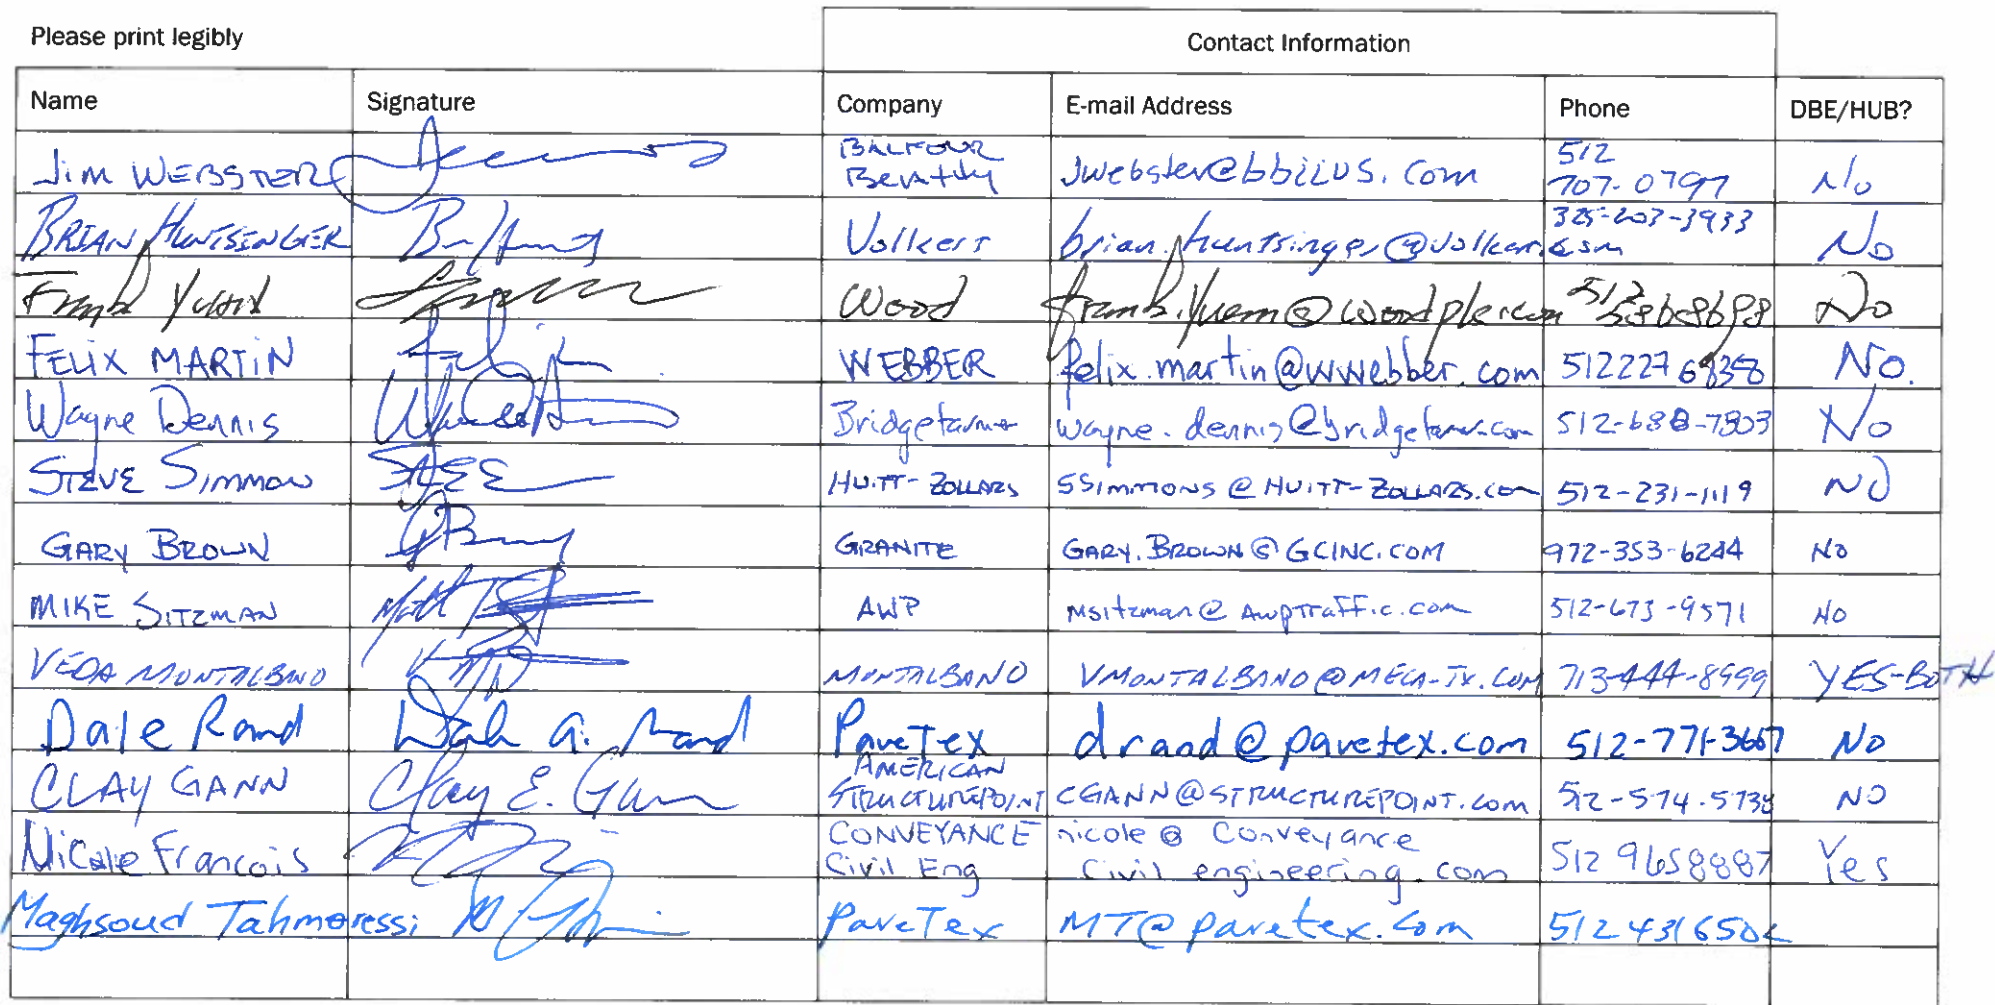 Please print legibly
Contact Information
Name Signature Company E-mail Address Phone DBE/HUB?
Jim WEBSTER BALFOUR Beatty Jwebster@bbiius.com 512 707-0797 No
BRIAN HUNTSINGER Volkert brian.huntsinger@volkert.com 325-203-3933 No
Frank Wood No
FELIX MARTIN WEBBER felix.martin@wwebber.com 512227 6838 No.
Wayne Dennis Bridgefarmer wayne.dennis@bridgefarmer.com 512-688-7803 No
STEVE SIMMONS HUITT-ZOLLARS SSIMMONS@HUITT-ZOLLARS.com 512-231-1119 NO
GARY BROWN GRANITE GARY.BROWN@GCINC.COM 972-353-6244 NO
MIKE SITZMAN AWP Msitzman@AwpTraffic.com 512-673-9571 NO
VEDA MONTALBANO MONTALBANO VMONTALBANO@MECA-TX.COM 713-444-8999 YES-BOTH
Dale Rand Dale A. Rand PaveTex drand@pavetex.com 512-771-3667 No
CLAY GANN Clay E. Gann AMERICAN STRUCTUREPOINT CGANN@STRUCTUREPOINT.com 512-574-5738 NO
Nicole Francois CONVEYANCE Civil Eng nicole@Conveyance Civil engineering.com 512 9658887 Yes
Maghsoud Tahmoressi PaveTex MT@pavetex.com 512 431 6502